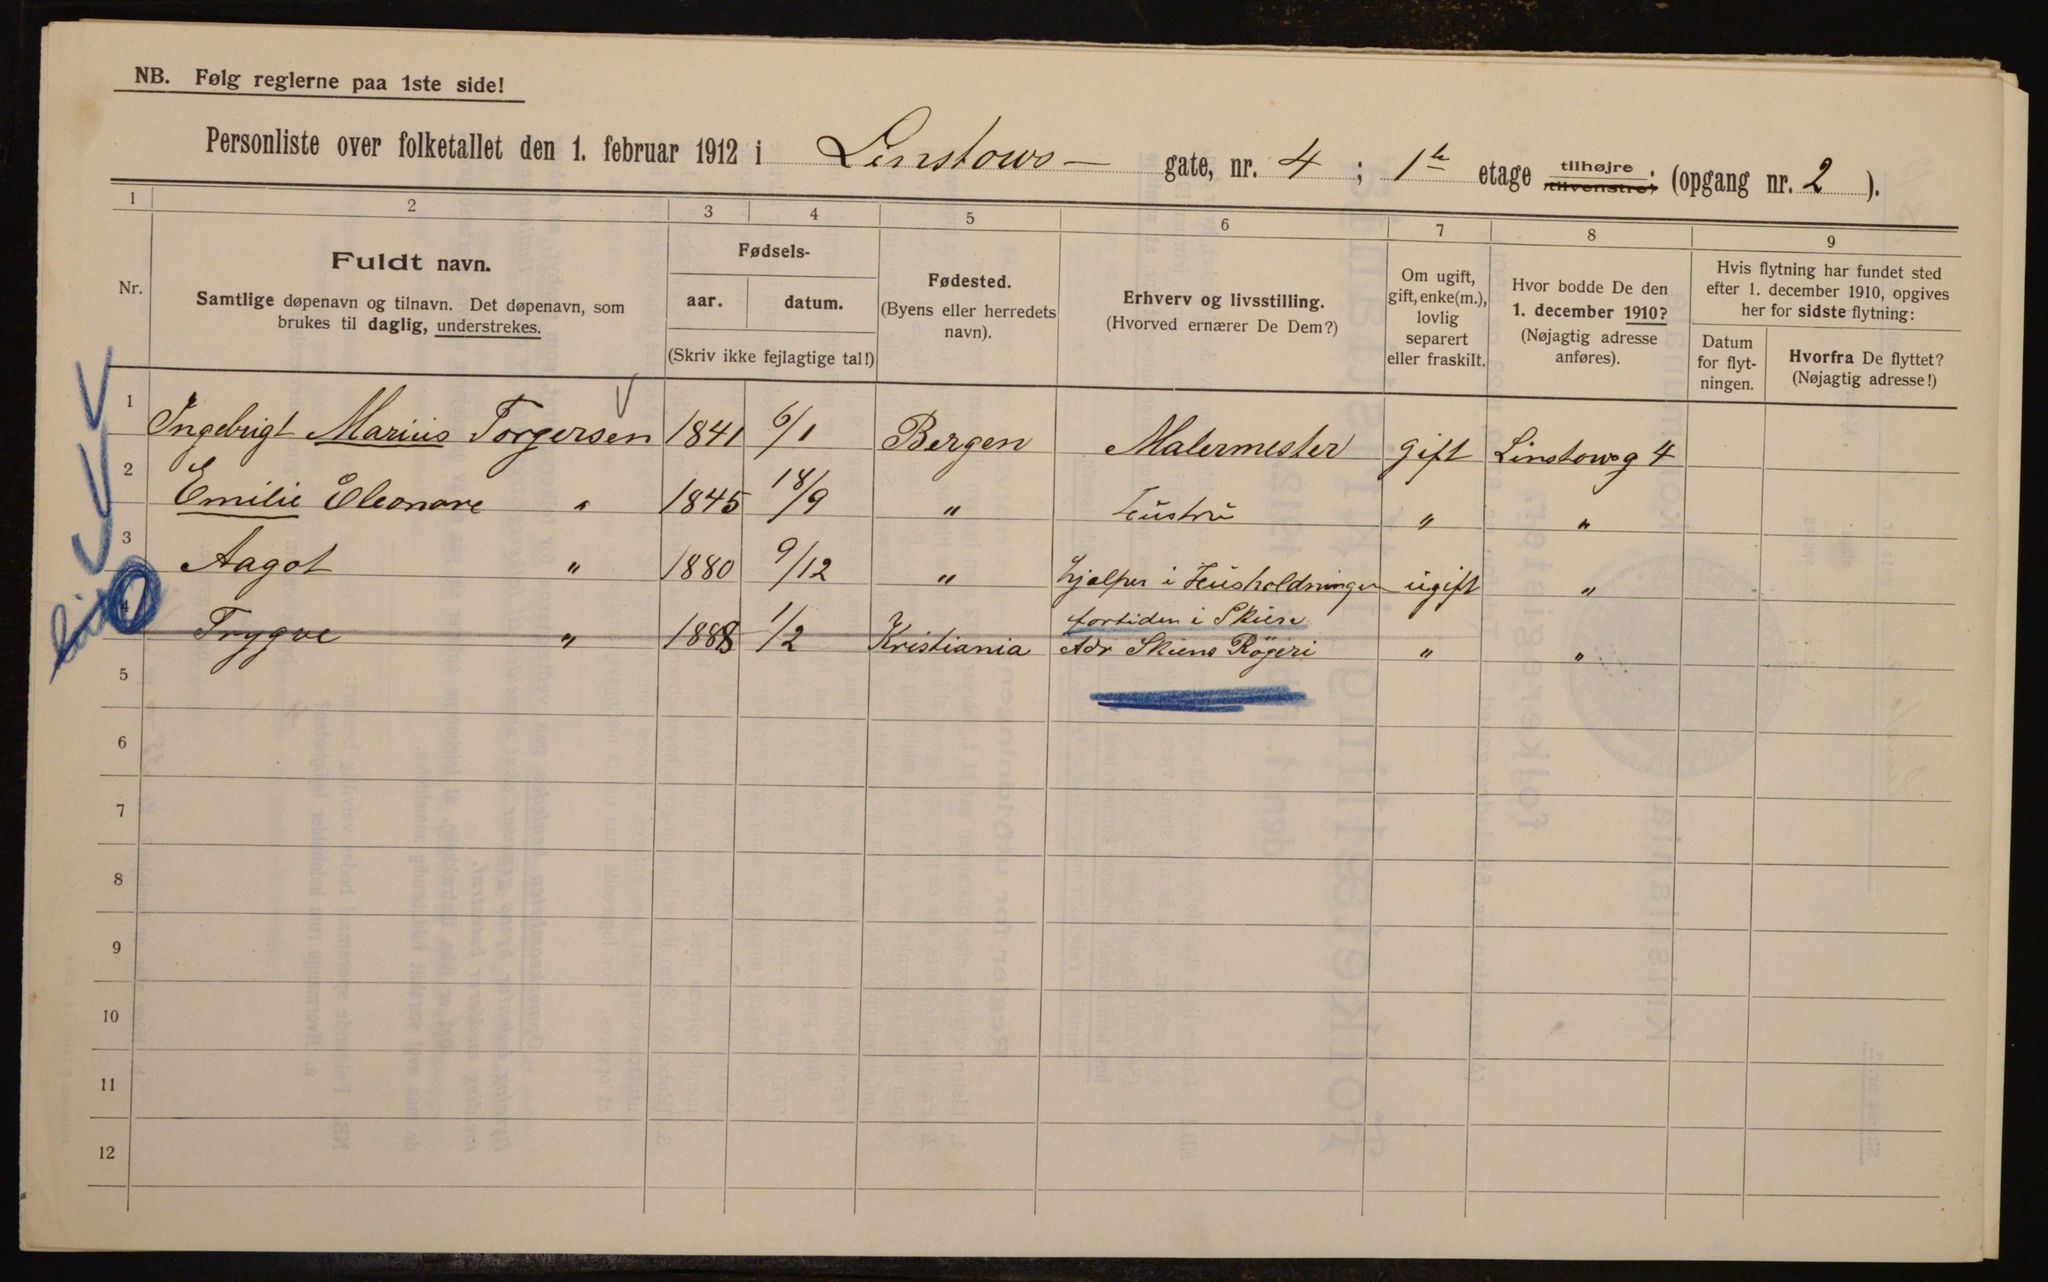 NB. Følg reglerne paa 1ste side!
Personliste over folketallet den 1. februar 1912 i Linstows gate, nr. 4 ; 1ste etage tilhøjre. (opgang nr. 2 ).
tilvenstre;
1 2 3 4 5 6 7 8 9
Nr.
Fuldt navn.
Samtlige døpenavn og tilnavn. Det døpenavn, som
brukes til daglig, understrekes.
Fødsels-
aar. datum.
(Skriv ikke fejlagtige tal!)
Fødested.
(Byens eller herredets
navn).
Erhverv og livsstilling.
(Hvorved ernærer De Dem?)
Om ugift,
gift, enke(m.),
lovlig
separert
eller fraskilt.
Hvor bodde De den
1. december 1910?
(Nøjagtig adresse
anføres).
Hvis flytning har fundet sted
efter 1. december 1910, opgives
her for sidste flytning:
Datum
for flyt-
ningen.
Hvorfra De flyttet?
(Nøjagtig adresse!)
1 Ingebrigt Marius Torgersen 1841 6/1 Bergen Malermester gift Linstowsg 4
2 Emilie Eleonore " 1845 18/9 " Hustru " "
3 Aagot " 1880 9/12 " hjælper i Husholdningen ugift "
4 Trygve " 1888 1/2 Kristiania fortiden i Skien
Adr Skiens Røgeri " "
5
6
7
8
9
10
11
12